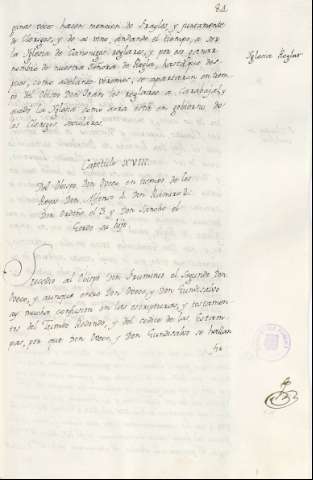 84
Iglesia Reglar
hacen mencion de Frayles, y juntamente
Clerigos, y de a vino, andando el tiempo, a ser
la Iglesia de Canonigos reglares, y por su
de nuestra Señora de Regla, hasta
como adelante veremos, se apartaron en tiem
po del Obispo Don Juan los reglares a Carabajal, y
quedó la Iglesia como aora está en gobierno de
los Clerigos seculares.
Capitulo XVIII.
Del Obispo Don Oveco en tiempo de los
Reyes Don Alfonso 4. Don Ramiro 2.
Don Ordoño el 3. y Don Sancho el
Gordo su hijo.
Sucedio al Obispo Don Frunimio el Segundo Don
Oveco, y aunque entre Don Oveco, y Don Gundisalvo
ay mucha confusion en las escripturas, y testamen
tos del Tumbo Redondo, y del codice de las Estam
pas, por que Don Oveco, y Don Gundisalvo se hallan